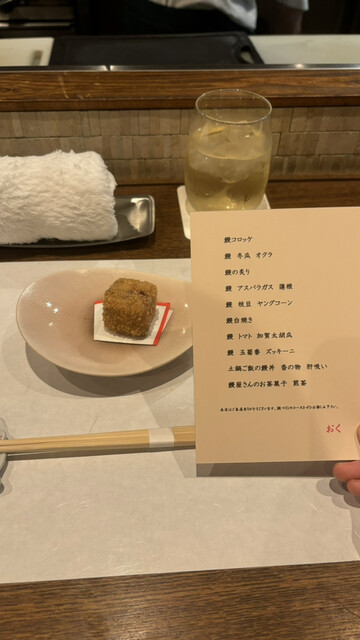 鰻コロッケ
鰻 冬瓜 オクラ
鰻の炙り
鰻 アスパラガス 蓮根
鰻 枝豆 ヤングコーン
鰻白焼き
鰻 トマト 加賀太胡瓜
鰻 玉蜀黍 ズッキーニ
土鍋ご飯の鰻丼 香の物 肝吸い
鰻屋さんのお茶菓子 煎茶
おく